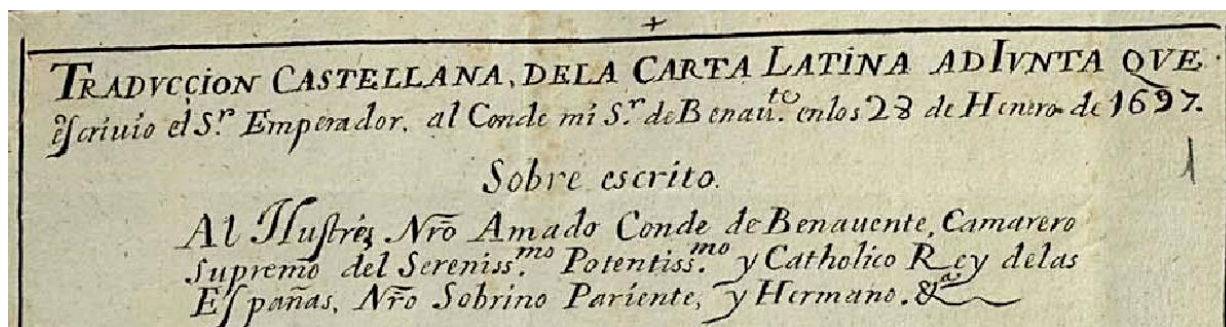 +
TRADVCÇION CASTELLANA, DELA CARTA LATINA ADIVNTA QVE
escriuio el S.r Emperador. al Conde mi S.r de Benau.te en los 28 de Henero de 1697.
1
Sobre escrito.
Al Ilustre, Nr̃o Amado Conde de Benauente, Camarero
Supremo del Sereniss.mo Potentiss.mo y Catholico Rey delas
Eſpañas, Nr̃o Sobrino Pariente, y Hermano. &a